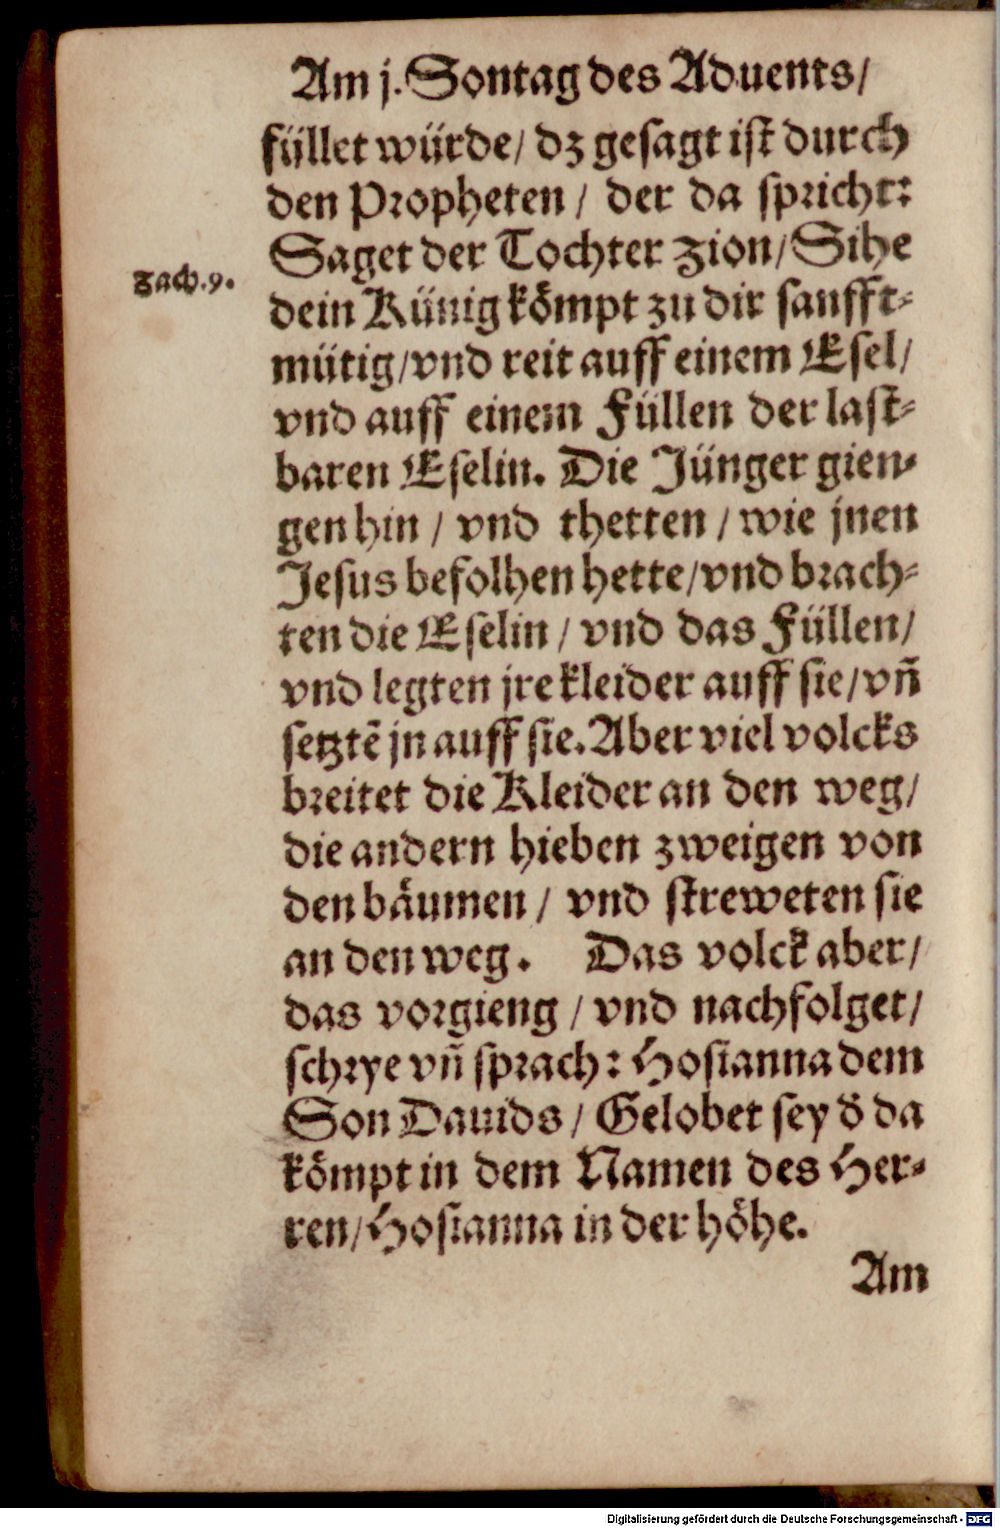 Am j. Sontag des Aduents/
füllet würde/ dz gesagt ist durch
den Propheten / der da spricht:
Saget der Tochter Zion/ Sihe
Zach. 9.
dein Künig kömpt zu dir saufft-
mütig/ vnd reit auff einem Esel/
vnd auff einem Füllen der last-
baren Eselin. Die Jünger gien-
gen hin / vnd thetten / wie jnen
Jesus befolhen hette/ vnd brach-
ten die Eselin / vnd das Füllen/
vnd legten jre kleider auff sie/ vñ
setztē jn auff sie. Aber viel volcks
breitet die Kleider an den weg/
die andern hieben zweigen von
den bäumen / vnd streweten sie
an den weg. Das volck aber/
das vorgieng / vnd nachfolget/
schrye vñ sprach: Hosianna dem
Son Dauids / Gelobet sey d̄ da
kömpt in dem Namen des Her-
ren/ Hosianna in der höhe.
Am
Digitalisierung gefördert durch die Deutsche Forschungsgemeinschaft - DFG